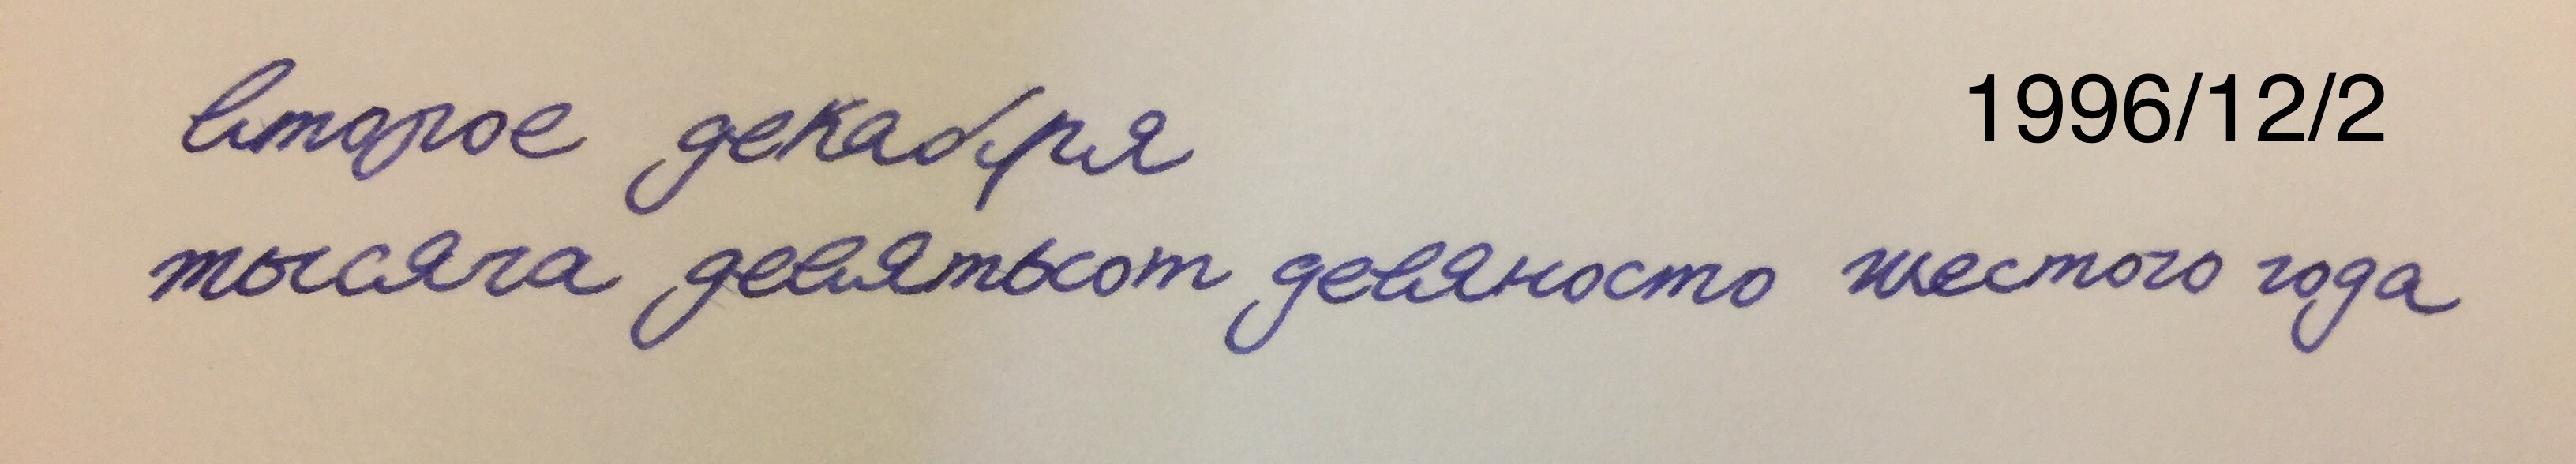 второе декабря 1996/12/2
тысяча девятьсот девяносто шестого года